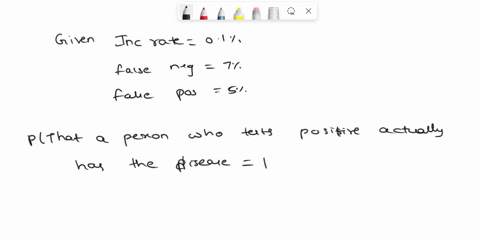 Given Inc rate = 0.1%
false neg = 7%
false pos = 5%
P(That a person who tests positive actually
has the disease = 1